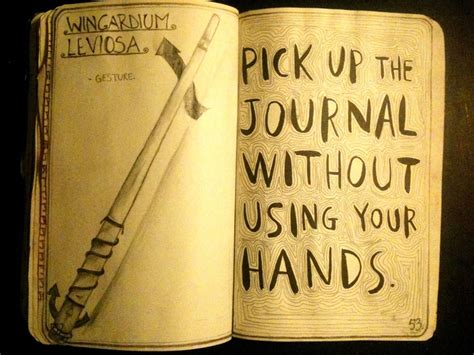 WINGARDIUM
LEVIOSA.
- GESTURE.
PICK UP THE
JOURNAL
WITHOUT
USING YOUR
HANDS.
53